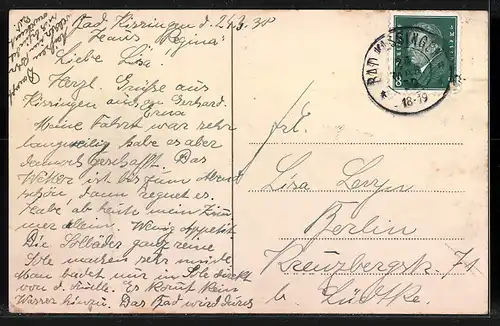 Bad Kissingen d. 24.3.30
Haus Regina
Liebe Lisa.
Herzl. Grüße aus
Kissingen auch an Gerhard.
Erna
Meine Fahrt war sehr
langweilig habe es aber
dennoch geschafft. Das
Wetter ist bis zum Abend
schön dann regnet es.
Habe ab heute mein Zim
mer allein. Wenig Appetit
Die Solbäder ganz reine
Sole machen sehr müde
Man badet nur in Sole direkt
von d. Quelle. Es kommt kein
Wasser hinzu. Das Bad wird
BAD KISSINGEN
18-19
8
Frl.
Lisa
Berlin
Kreuzbergstr. 71
b. Lüdtke.